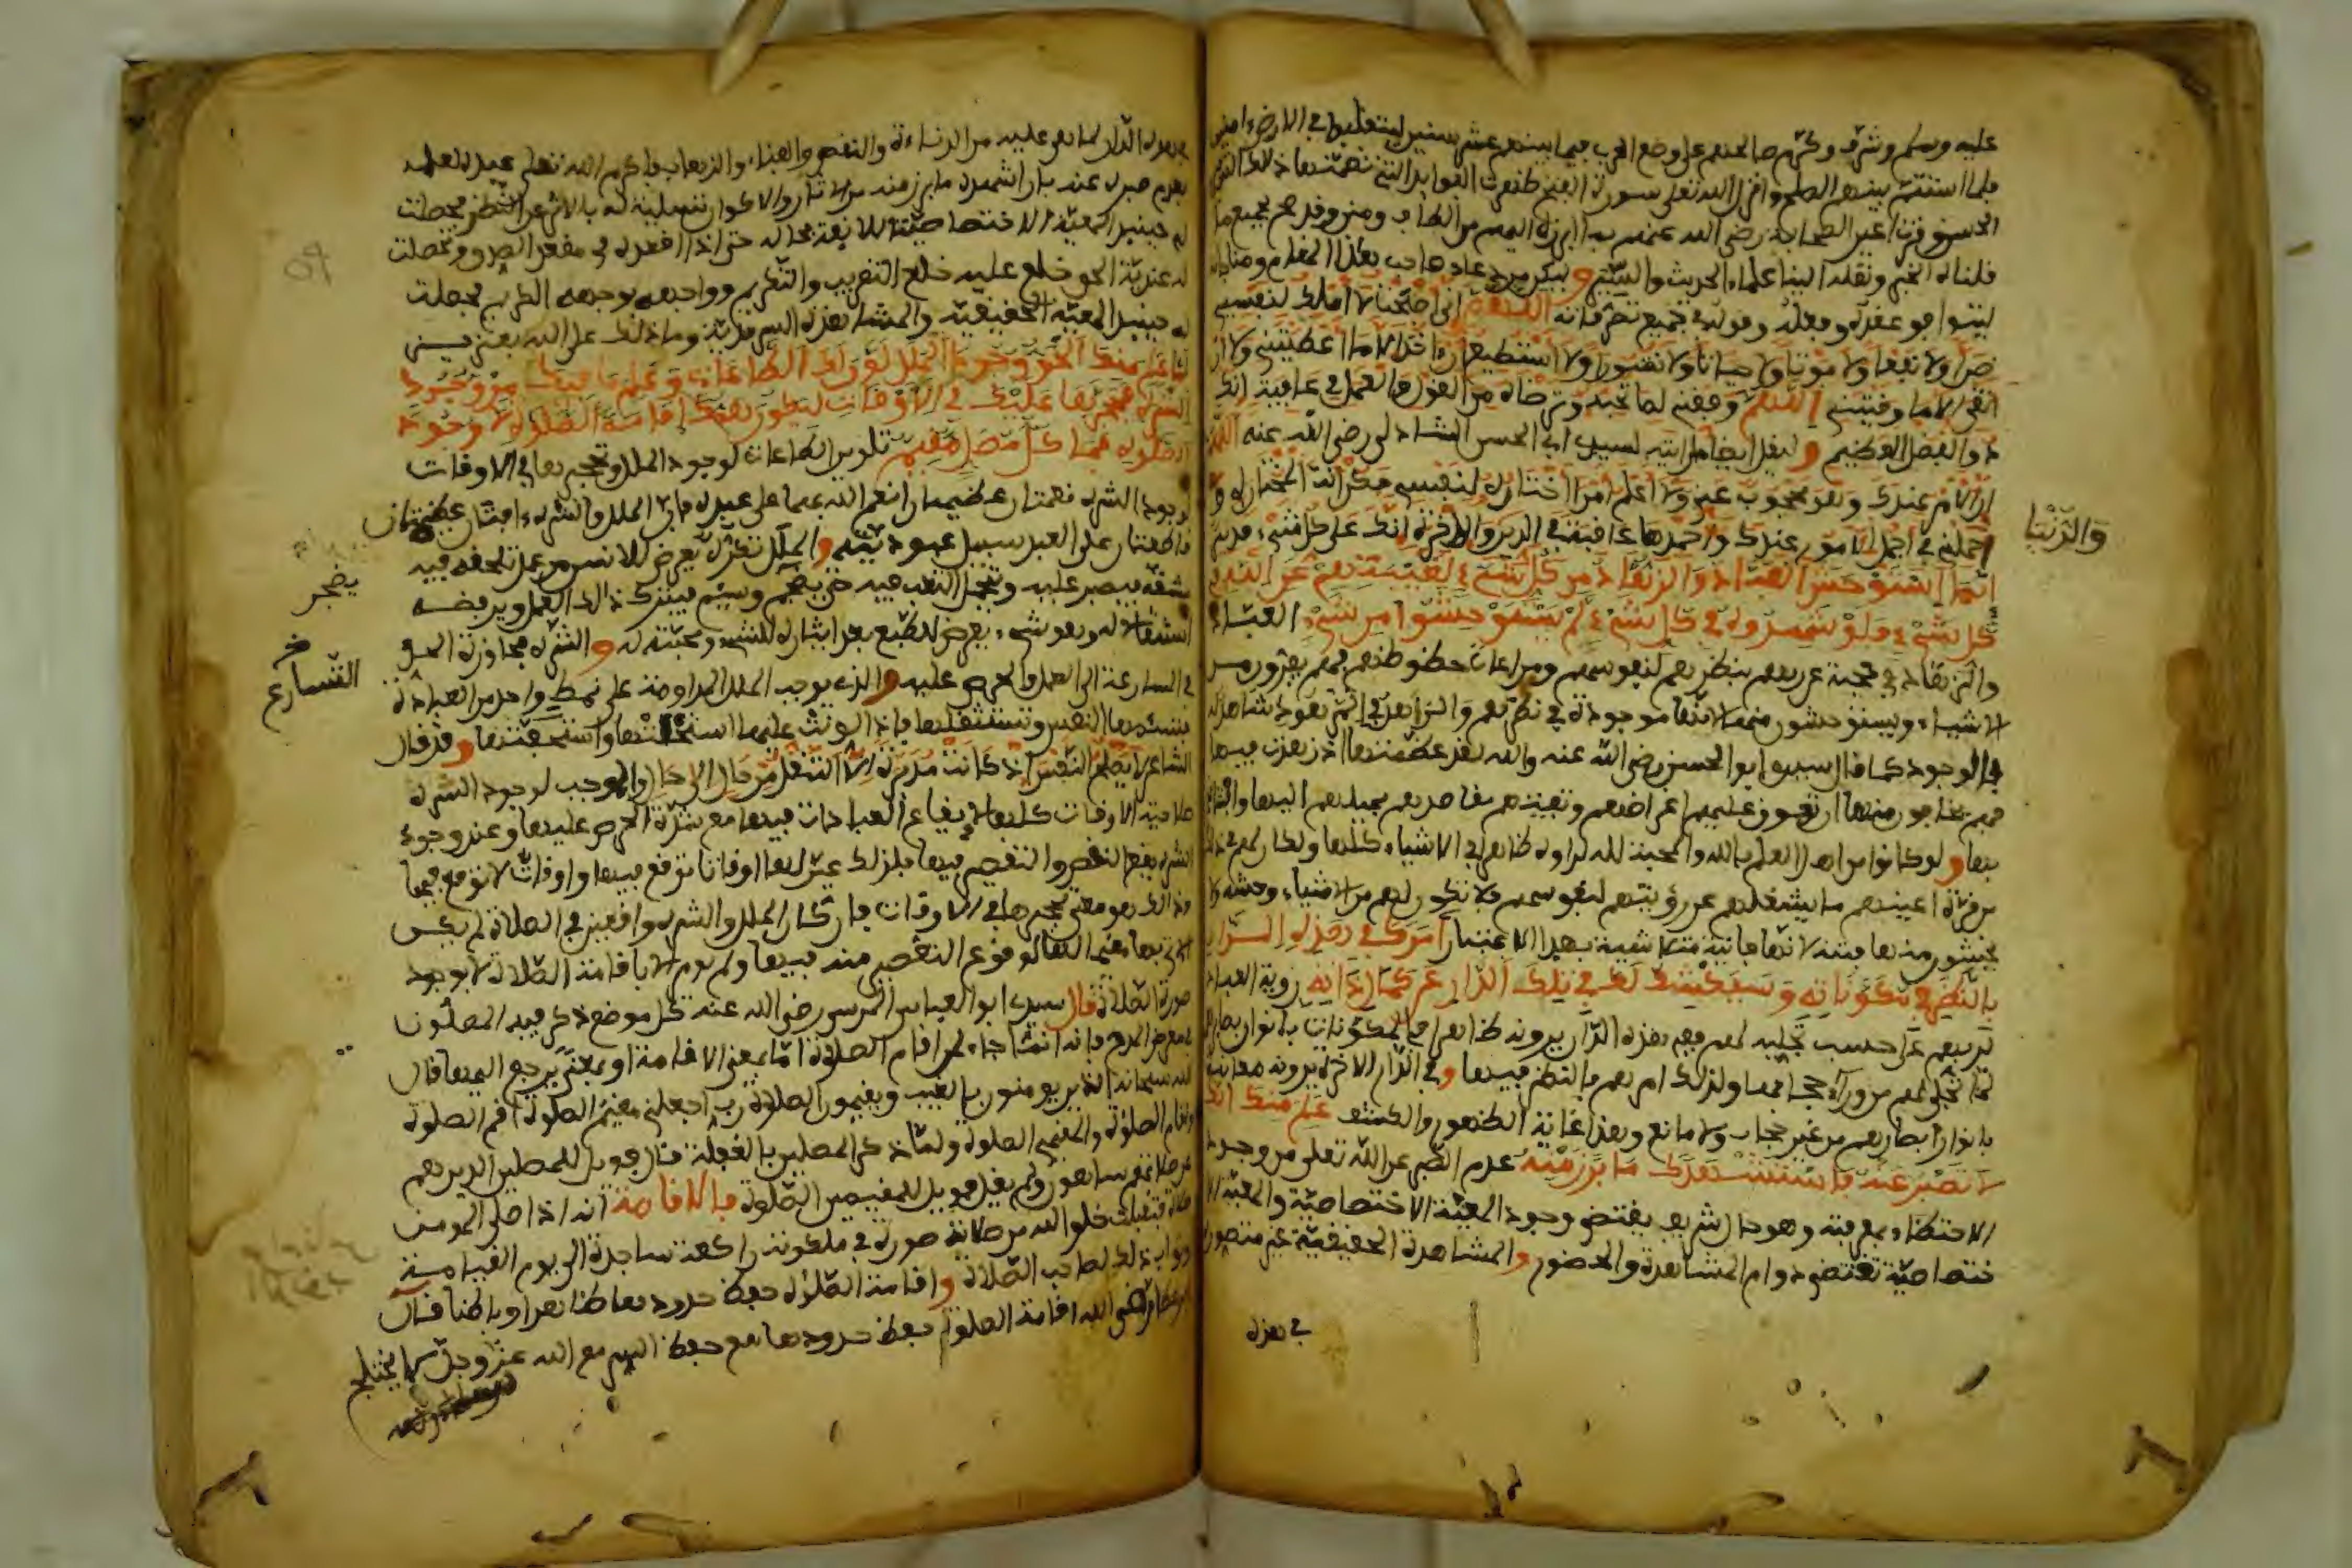 عليه وسلم وشرف وكرم صالحهم على وضع الحرب فيما بينهم عشر سنين ليتقلبوا في الارض امنين
فلما استقر بينهم الصلح وانزل الله تعلى سورة الفتح ظهرت الفوايد التي تضمنها ذلك
رضي الله عنهم
لينوا في عقده وفعله وقوله في جميع تصرفاته اللهم اني اصبحت لا املك لنفسي
ضرا ولا نفعا ولا موتا ولا حياتا ولا نشورا ولا استطيع ان اخذ الا ما اعطيتني ولا ان
اتقي الا ما وقيتني اللهم وفقني لما تحبه وترضاه من القول والعمل في عافية انك
ذو الفضل العظيم و لسيدي ابي الحسن الشاذلي رضي الله عنه اللهم
ان الامر عندك وهو محجوب عني ولا اعلم امرا اختاره لنفسي فكن انت المختار لي و
احملني في اجمل الامور عندك واحمدها عافبة في الدين والاخرة انك على كل شيء قدير
والدنيا
انما استوحش العباد والزهاد من كل شيء لغيبتهم عن الله في
كل شيء فلو شهدوه في كل شيء لم يستوحشوا من شيء العباد
والزهاد في حجبة عن ربهم بنظرهم لنفوسهم ومراعات حظوظهم فهم يفرون من
الاشياء ويستوحشون منها لانها موجودة في نظرهم
في الوجود كما قال سيدي ابو الحسن رضي الله عنه والله لقد عظمتها اذ زهدت فيها
فهم يخافون منها ان تفوت عليهم اغراضهم وتفتنهم مقاصدهم بميلهم اليها
بها و لو كانوا من اهل العلم بالله والمحبة لله لراوه ظاهرا في الاشياء كلها ولكان لهم في ذلك
من قرة اعينهم ما يشغلهم عن رؤيتهم لنفوسهم فلا تكون لهم من الاشياء وحشة ولا
يخشون منها فتنة لانها فانية متلاشية بهذا الاعتبار امرك في هذه الدار
بالنظر في مكوناته وسيكشف لك في تلك الدار عن كمال ذاته روية العباد
لربهم على حسب تجليه لهم ففي هذه الدار يرونه ظاهرا في المكونات بانوار بصايرهم
لما تجلى لهم من وراء حجابها ولذلك امرهم بالنظر فيها و في الدار الاخرة يرونه معاينة
بانوار ابصارهم من غير حجاب ولا مانع وهذا غاية الظهور والكشف علم منك انك
لا تصبر عنه فاشهدك ما برز منه عدم الصبر عن الله تعلى من وجود
الاحتظاء بمعرفته وهو حال شريف يقتضي وجود المعية الاختصاصية والمعية الا
ختصاصية تقتضي دوام المشاهدة والحضور و المشاهدة الحقيقية غير متصور
في هذه
هذه الدار لما هي عليه من الدناءة والنقص والفناء والذهاب فاكرم الله تعلى عبده
عنه بان اشهده ما برز منه من الاثار والاكوان تسلية له بالاثر عن النظر فحصلت
له حينيذ المعية الاختصاصية اللايقة بحاله حتى اذا اقعده في مقعد الصدق وتحصلت
له عندية الحق خلع عليه خلع التقريب والتكريم وواجهه بوجهه الكريم فحصلت
له حينيذ المعية الحقيقية والمشاهدة السرمدية وما ذلك على الله بعزيز
لما علم منك الحق وجود الملل لون لك الطاعات وعلم ما فيك من وجود
الشره فحجرها عليك في الاوقات ليكون همك اقامة الصلوة لا وجود
الصلوة فما كل مصل مقيم تلوين الطاعات لوجود الملل وتحجيرها في الاوقات
لوجود الشره نعمتان عظيمتان انعم الله بهما على عبده فان الملل والشره افتان عظيمتان
قاطعتان على العبد سبيل عبوديته و الملل نفرة تعرض للانسان من عمل تلحقه فيه
مشقة فيصبر عليه وتحمل التعب فيه حتى يضجر وسيم فيترك ذلك العمل ويرفضه
يضجر
استثقالا له وهو شيء يعرض للطبع بعد ايثاره للشيء ومحبته له و الشره مجاوزة الحد
في المسارعة الى العمل والحرص عليه و الذي يوجب الملل المداومة على نمط واحد من العبادة
خ
التسارع
فتسئمها النفس وتستثقلها فاذا لونت عليها استحلتها واستخفتها و قد قال
الشاعر لا يصلح النفس اذ كانت مدبرة الا التنقل من حال الى حال و الموجب لوجود الشره
صلاحية الاوقات كلها لايقاع العبادات فيها مع شدة الحرص عليها وعند وجود
الشره يقع النقص والتقصير فيها فلذلك عين لها اوقاتا توقع فيها واوقات لا توقع فيها
وذلك هو معنى تحجيرها في الاوقات فان كان الملل والشره واقعين في الصلاة لم يكن
الاتي بها مقيما لها لوقوع التقصير منه فيها ولم يومر الا باقامة الصلاة لا بوجود
صورة الصلاة قال سيدي ابو العباس المرسي رضي الله عنه كل موضع ذكر فيه المصلون
في معرض المدح فانه انما جاء لمن اقام الصلوة اما بمعنى الاقامة او بمعنى يرجع اليها قال
الله سبحانه الذين يومنون بالغيب ويقيمون الصلوة رب اجعلني مقيم الصلوة اقم الصلوة
واقام الصلوة والمقيمي الصلوة ولما ذكر المصلين بالغفلة قال فويل للمصلين الذين هم
عن صلاتهم ساهون ولم يقل فويل للمقيمين الصلوة فالاقامة انه اذا صلى المومن
صلاة فتقبلت خلق الله من صلاته صورة في ملكوته راكعة ساجدة الى يوم القيامة
وثواب ذلك لصاحب الصلاة و اقامة الصلوة حفظ حدودها ظاهرا وباطنا قال
ابن عطاء رضي الله اقامة الصلوة حفظ حدودها مع حفظ السر مع الله عز وجل لا يختلج